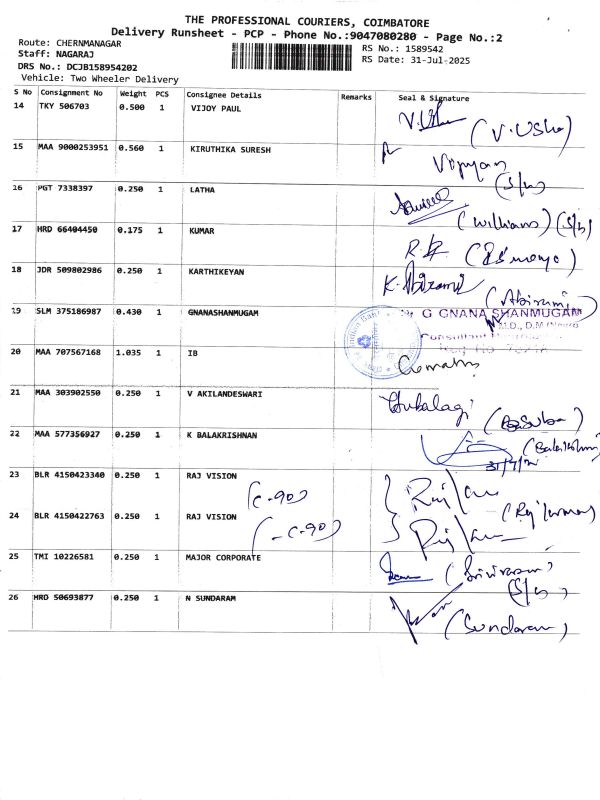 THE PROFESSIONAL COURIERS, COIMBATORE
Delivery Runsheet - PCP - Phone No.:9047080280 - Page No.:2
Route: CHERNMANAGAR
Staff: NAGARAJ
DRS No.: DCJB158954202
Vehicle: Two Wheeler Delivery
RS No.: 1589542
RS Date: 31-Jul-2025
S No Consignment No Weight PCS Consignee Details Remarks Seal & Signature
14 TKY 506703 0.500 1 VIJOY PAUL
(V.Usha)
15 MAA 9000253951 0.560 1 KIRUTHIKA SURESH
16 PGT 7338397 0.250 1 LATHA
(williams) (S/h)
17 HRD 66404450 0.175 1 KUMAR
18 JDR 509802986 0.250 1 KARTHIKEYAN
K. Abirami (Abirami)
19 SLM 375186987 0.430 1 GNANASHANMUGAM
G GNANA SHANMUGAM
20 MAA 707567168 1.035 1 IB
21 MAA 303902550 0.250 1 V AKILANDESWARI
22 MAA 577356927 0.250 1 K BALAKRISHNAN
23 BLR 4150423340 0.250 1 RAJ VISION
(C-90)
24 BLR 4150422763 0.250 1 RAJ VISION
(-C-90)
25 TMI 10226581 0.250 1 MAJOR CORPORATE
26 HRD 50693877 0.250 1 N SUNDARAM
(Sundaram)